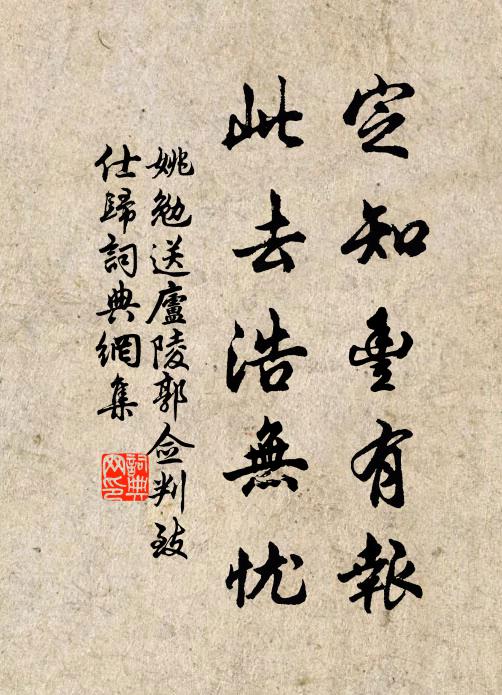 定知豐有報
此去浩無忧
姚勉送廬陵郭僉判致
仕歸詞典網集
詞典
网印